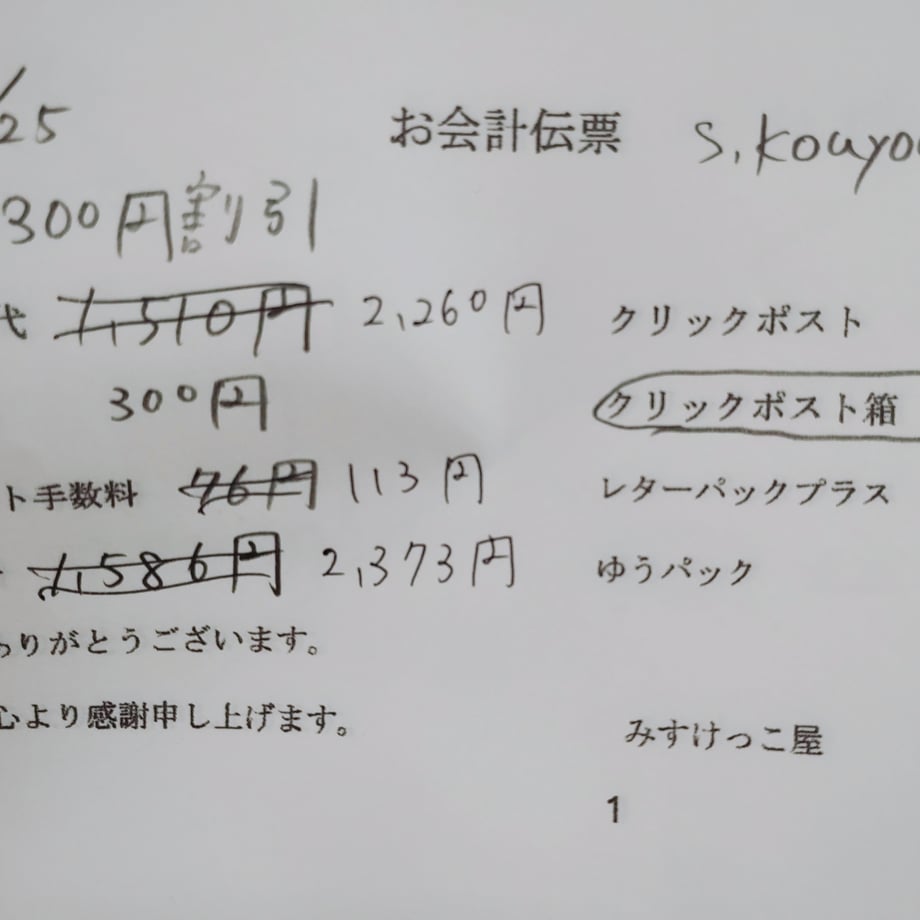 /25
お会計伝票 S.Kouyo
300円割引
代 1,510円 2,260円 クリックポスト
300円 クリックポスト箱
ト手数料 76円 113円 レターパックプラス
1,586円 2,373円 ゆうパック
ありがとうございます。
心より感謝申し上げます。
みすけっこ屋
1